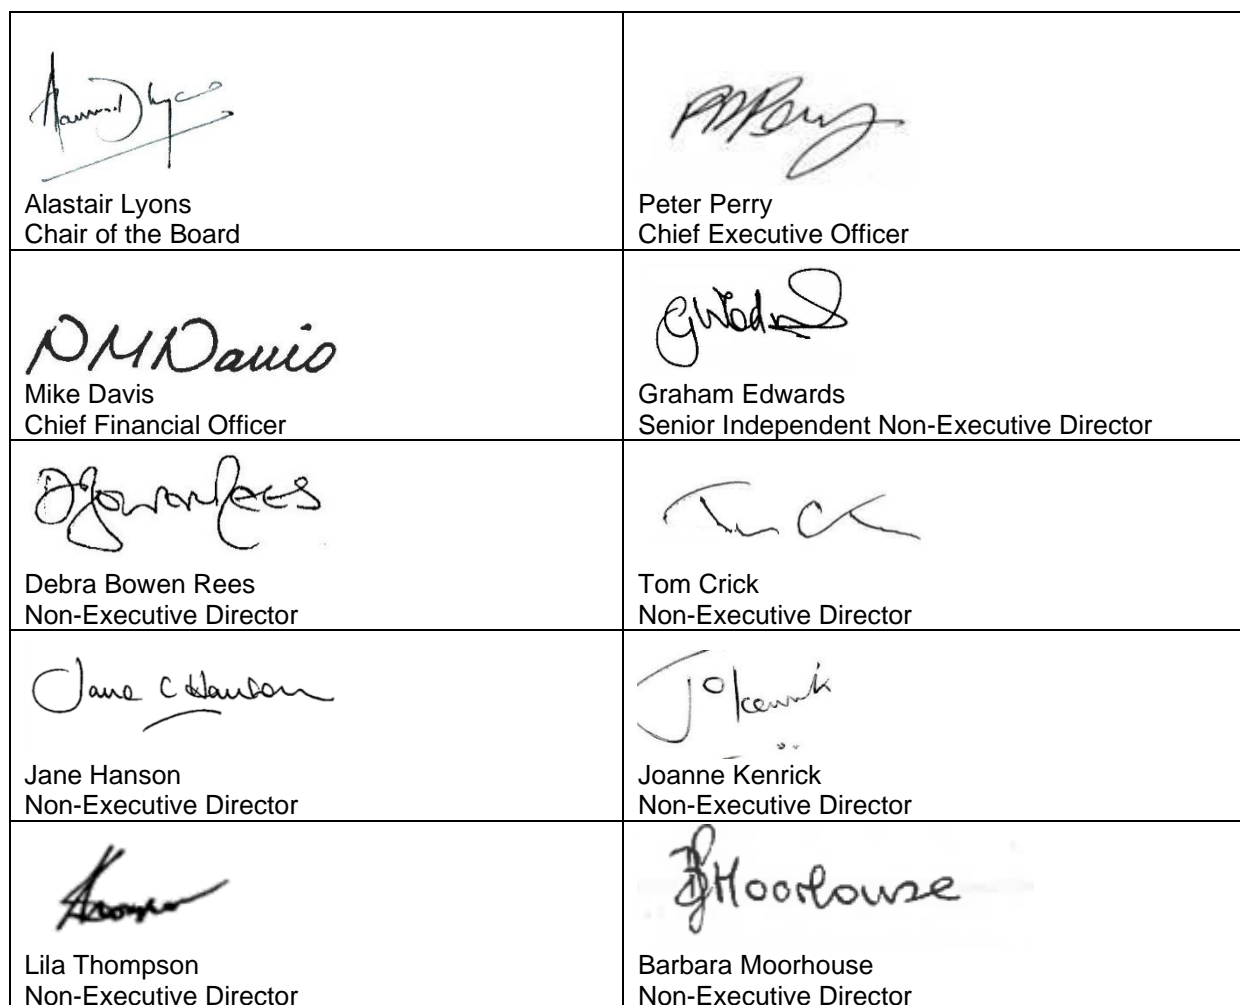 Alastair Lyons
Chair of the Board
Peter Perry
Chief Executive Officer
DMDavis
Mike Davis
Chief Financial Officer
Graham Edwards
Senior Independent Non-Executive Director
Debra Bowen Rees
Non-Executive Director
Tom Crick
Non-Executive Director
Jane C Hanson
Jane Hanson
Non-Executive Director
Joanne Kenrick
Non-Executive Director
Lila Thompson
Non-Executive Director
BJMoorhouse
Barbara Moorhouse
Non-Executive Director